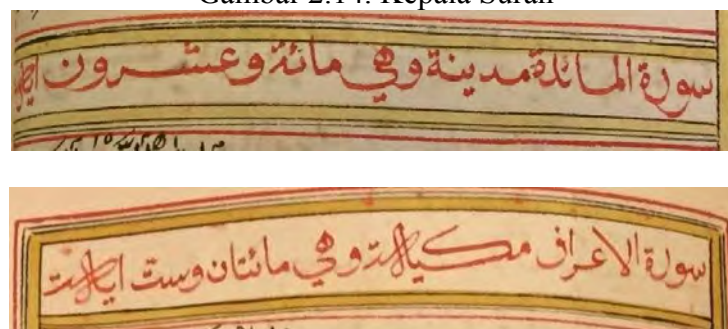 Gambar 2.14. Kepala Surah
سورة المائدة مدينة وهي مائة وعشرون
سورة الاعراف مكية وهي مائتان وست ايات